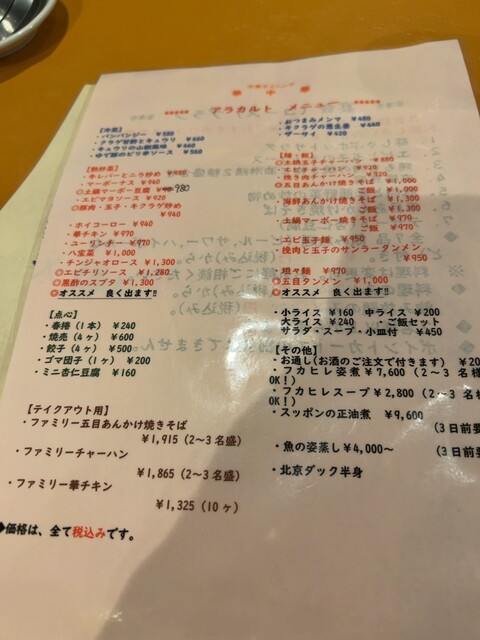 アラカルト メニュー
【冷菜】
・バンバンジー ¥580
・クラゲ甘酢とキュウリ ¥660
・キュウリの山椒風味 ¥460
・ゆで豚のピリ辛ソース ¥580
・おつまみメンマ ¥480
・キクラゲの生姜 ¥460
・ザーサイ ¥420
【熱炒菜】
・牛レバーとニラ炒め
・マーボーナス ¥960
◎土鍋マーボー豆腐 980
・エビマヨソース ¥920
◎豚肉・玉子・キクラゲ炒め
¥940
・ホイコーロー ¥940
・華チキン ¥970
・ユーリンチー ¥970
・八宝菜 ¥1,000
・チンジャオロース ¥1,300
◎エビチリソース ¥1,280
◎黒酢のスブタ ¥1,300
◎オススメ 良く出ます!!
【麺・飯】
◎土鍋玉子チャーハン ¥880
・エビチャーハン ¥920
・挽き肉チャーハン ¥920
◎五目あんかけ焼きそば ¥1,000
ご飯 ¥1,000
・海鮮あんかけ焼きそば ¥1,300
ご飯 ¥1,300
・土鍋マーボー焼きそば ¥970
ご飯 ¥970
・エビ玉子麺 ¥950
・挽肉と玉子のサンラータンメン
¥950
・坦々麺 ¥970
◎五目タンメン ¥1,000
◎オススメ 良く出ます!!
【点心】
・春捲(1本) ¥240
・焼売(4ヶ) ¥600
・餃子(4ヶ) ¥500
・ゴマ団子(1ヶ) ¥200
・ミニ杏仁豆腐 ¥160
・小ライス ¥160 中ライス ¥200
大ライス ¥240 ・ご飯セット
サラダ・スープ・小皿付 ¥450
【その他】
・お通し(お酒のご注文で付きます)
・フカヒレ姿煮 ¥7,600(2～3名様
OK!)
・フカヒレスープ ¥2,800(2～3名様
OK!)
・スッポンの正油煮 ¥9,600
(3日前要
・魚の姿蒸し ¥4,000～
(3日前要
・北京ダック半身
【テイクアウト用】
・ファミリー五目あんかけ焼きそば
¥1,915(2～3名盛)
・ファミリーチャーハン
¥1,865(2～3名盛)
・ファミリー華チキン
¥1,325(10ヶ)
◆価格は、全て税込みです。